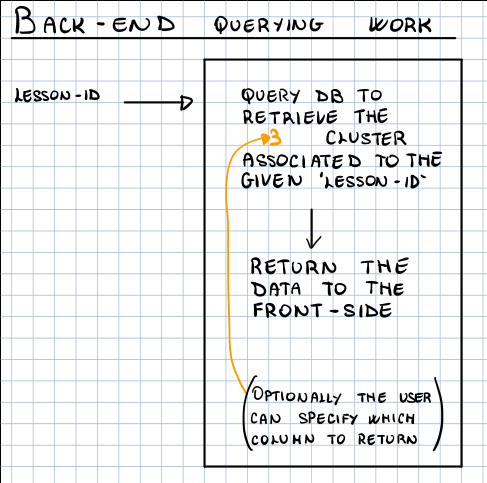 BACK-END QUERYING WORK
LESSON-ID
QUERY DB TO
RETRIEVE THE
3 CLUSTER
ASSOCIATED TO THE
GIVEN 'LESSON-ID'
RETURN THE
DATA TO THE
FRONT-SIDE
(OPTIONALLY THE USER
CAN SPECIFY WHICH
COLUMN TO RETURN)